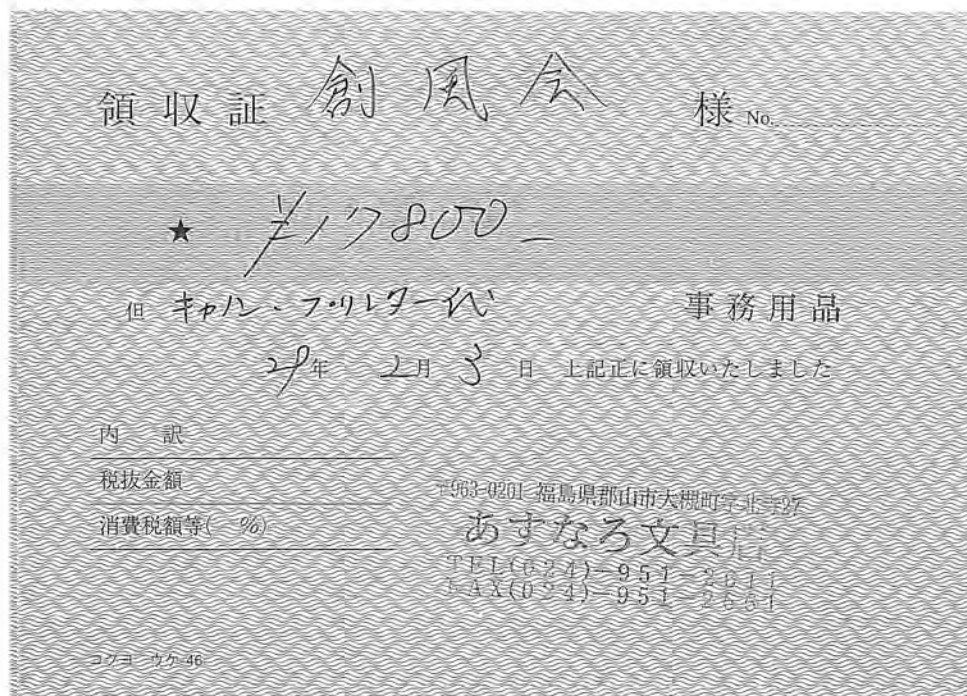 領収証 創風会 様 No.
★ ¥17800-
但 キャノン・プリンター代 事務用品
29年 2月 3日 上記正に領収いたしました
内 訳
税抜金額
消費税額等( %)
〒963-0201 福島県郡山市大槻町字北寺27
あすなろ文具店
TEL(024)-951-2611
FAX(024)-951-2661
コクヨ ウケ-46